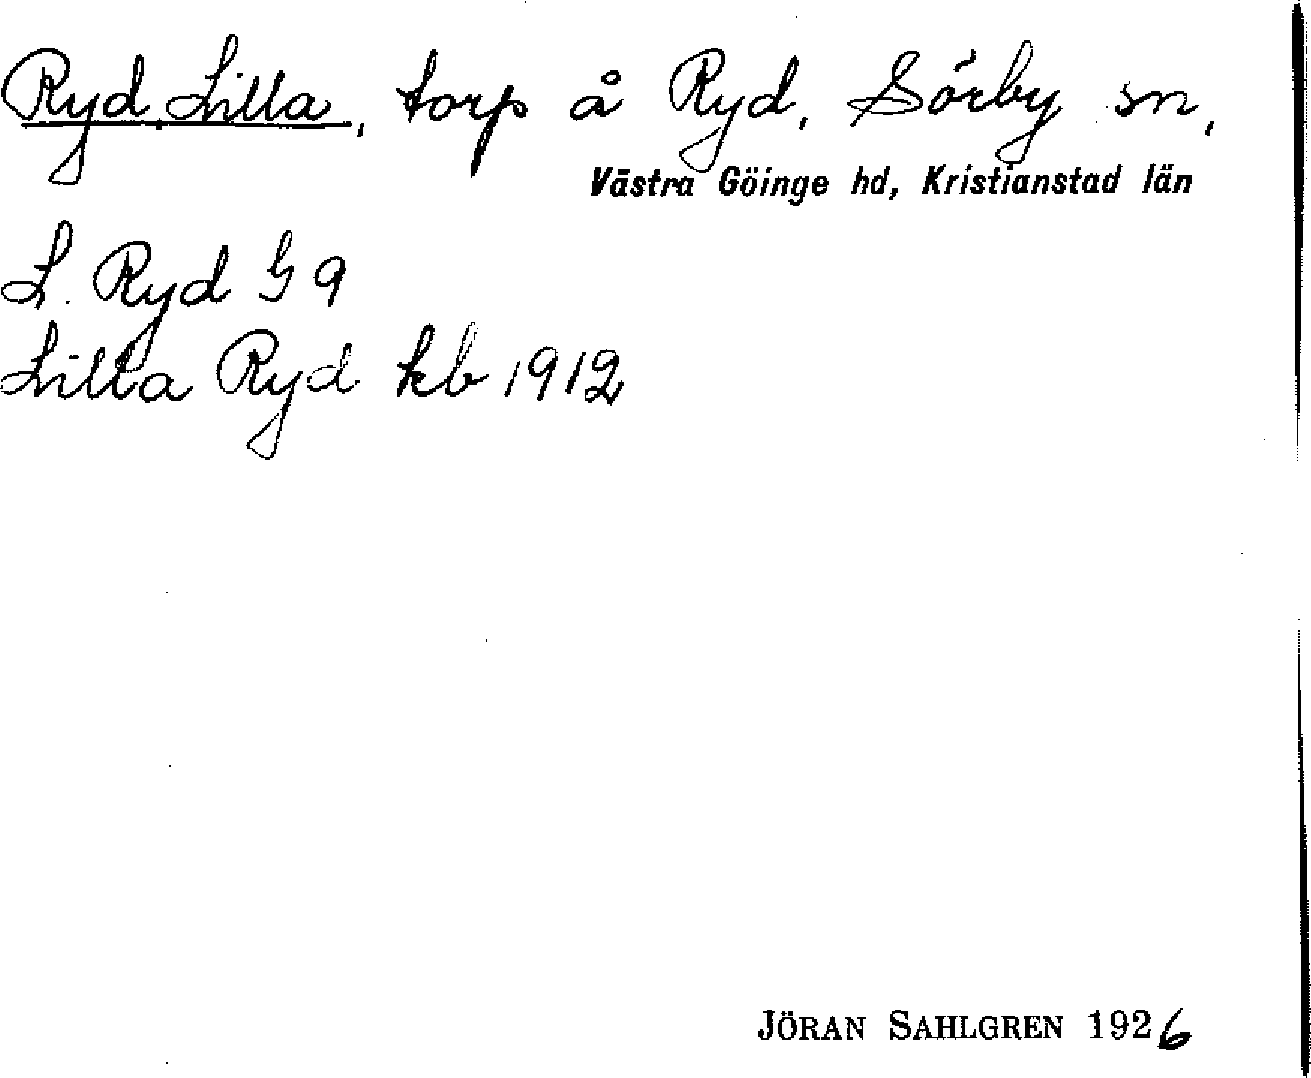 Ryd, Lilla, torp å Ryd, Sörby sn,
Västra Göinge hd, Kristianstad län
L. Ryd G 9
Lilla Ryd kb 1912
JÖRAN SAHLGREN 1926